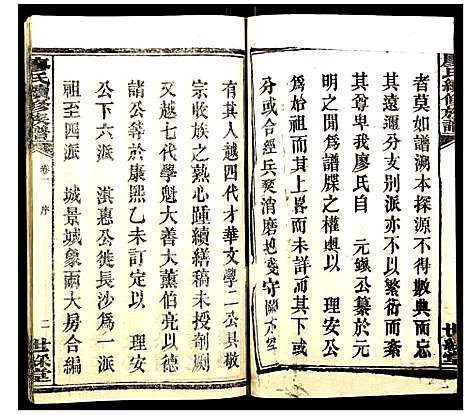 廖氏續修族譜
者莫如譜溯本探源不得數典而忘
其尊卑我廖氏自 元鎡公纂於元
其遠邇分支别派亦不以繁衍而失
明之間為譜牒之權輿以 理安公
為始祖而其上畧而未詳焉
分或合經兵燹消磨抱殘守闕
有其人越四代才華文學二公具敬
宗收族之熱心踵續繕稿未授剞劂
又越七代學魁大善大薰伯亮以德
諸公等於康熙乙未訂定以 理安
公下六派 淇惠公徙長沙為一派
祖至四派 城景城象兩大房合編
廖氏續修族譜
卷一 序
二
世綵堂